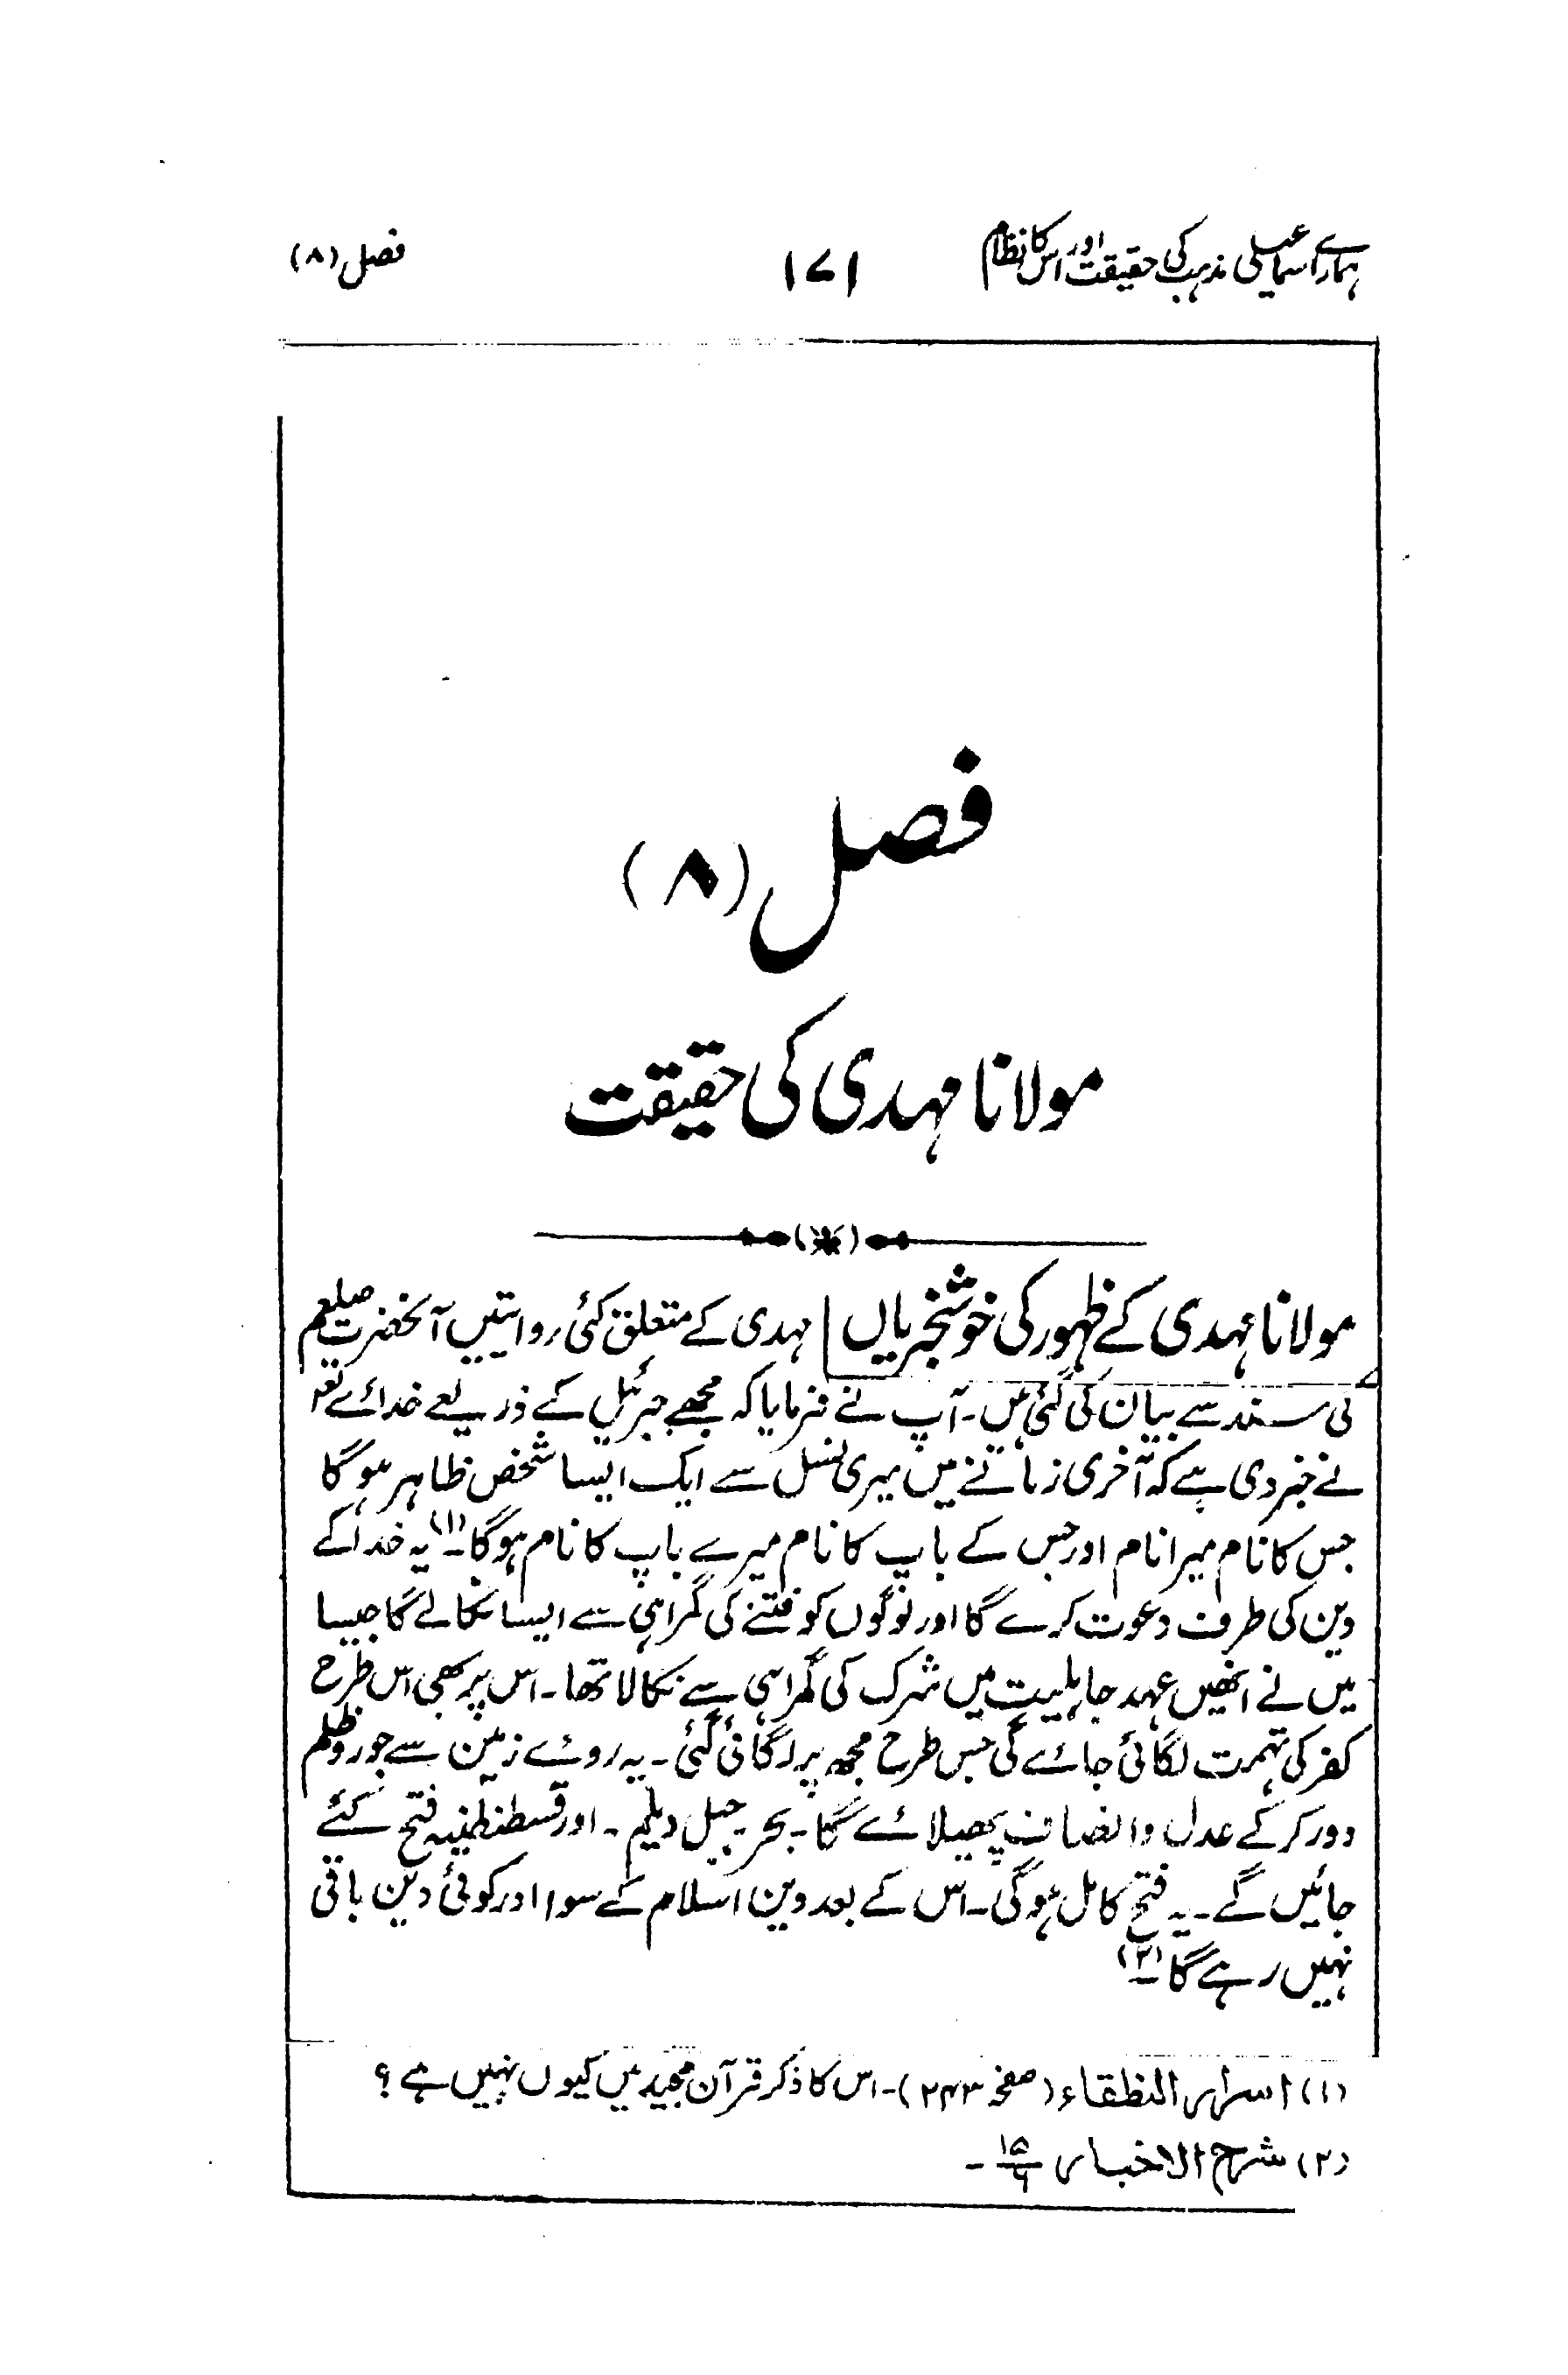 ہمارے اسماعیلی مذہب کی حقیقت اور اس کا نظام ۱۷۱ فصل (۸)
فصل (۸)
مولانا مہدی کی حقیقت
مولانا مہدی کے ظہور کی خوشخبریاں مہدی کے متعلق کئی روایتیں آنحضرت صلعم
کی سند سے بیان کی گئی ہیں۔ آپ نے فرمایا کہ مجھے جبرئیل کے ذریعے خدائے تعہ
نے خبر دی ہے کہ آخری زمانے میں میری نسل سے ایک ایسا شخص ظاہر ہوگا
جس کا نام میرا نام اور جس کے باپ کا نام میرے باپ کا نام ہوگا۔(۱) یہ خدا کے
دین کی طرف دعوت کرے گا اور لوگوں کو فتنے کی گمراہی سے ایسا نکالے گا جیسا
میں نے انھیں عہد جاہلیت میں شرک کی گمراہی سے نکالا تھا۔ اس پر بھی اس طرح
کفر کی تہمت لگائی جائے گی جس طرح مجھ پر لگائی گئی۔ یہ روئے زمین سے جور و ظلم
دور کر کے عدل و انصاف پھیلائے گا۔ بحر جبل دیلم۔ اور قسطنطنیہ فتح کئے
جائیں گے۔ یہ فتح کامل ہوگی۔ اس کے بعد دین اسلام کے سوا اور کوئی دین باقی
نہیں رہے گا۔(۲)
(۱) اسرار النطقاء (صفحہ ۲۴۳)۔ اس کا ذکر قرآن مجید میں کیوں نہیں ہے؟
(۲) شرح الاخبار ۱۵/۶ ۔